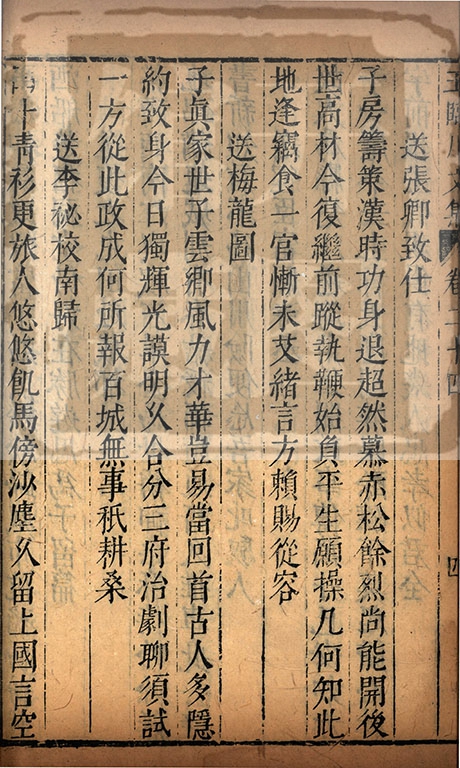 王臨川文集 卷二十四 四
送張卿致仕
子房籌策漢時功身退超然慕赤松餘烈尚能開後
世高材今復繼前蹤執鞭始負平生願操几何知此
地逢竊食一官慚未艾緒言方賴賜從容
送梅龍圖
子眞家世子雲鄉風力才華豈易當回首古人多隱
約致身今日獨輝光謨明久合分三府治劇聊須試
一方從此政成何所報百城無事秖耕桑
送李祕校南歸
十青衫更旅人悠悠飢馬傍沙塵久留上國言空